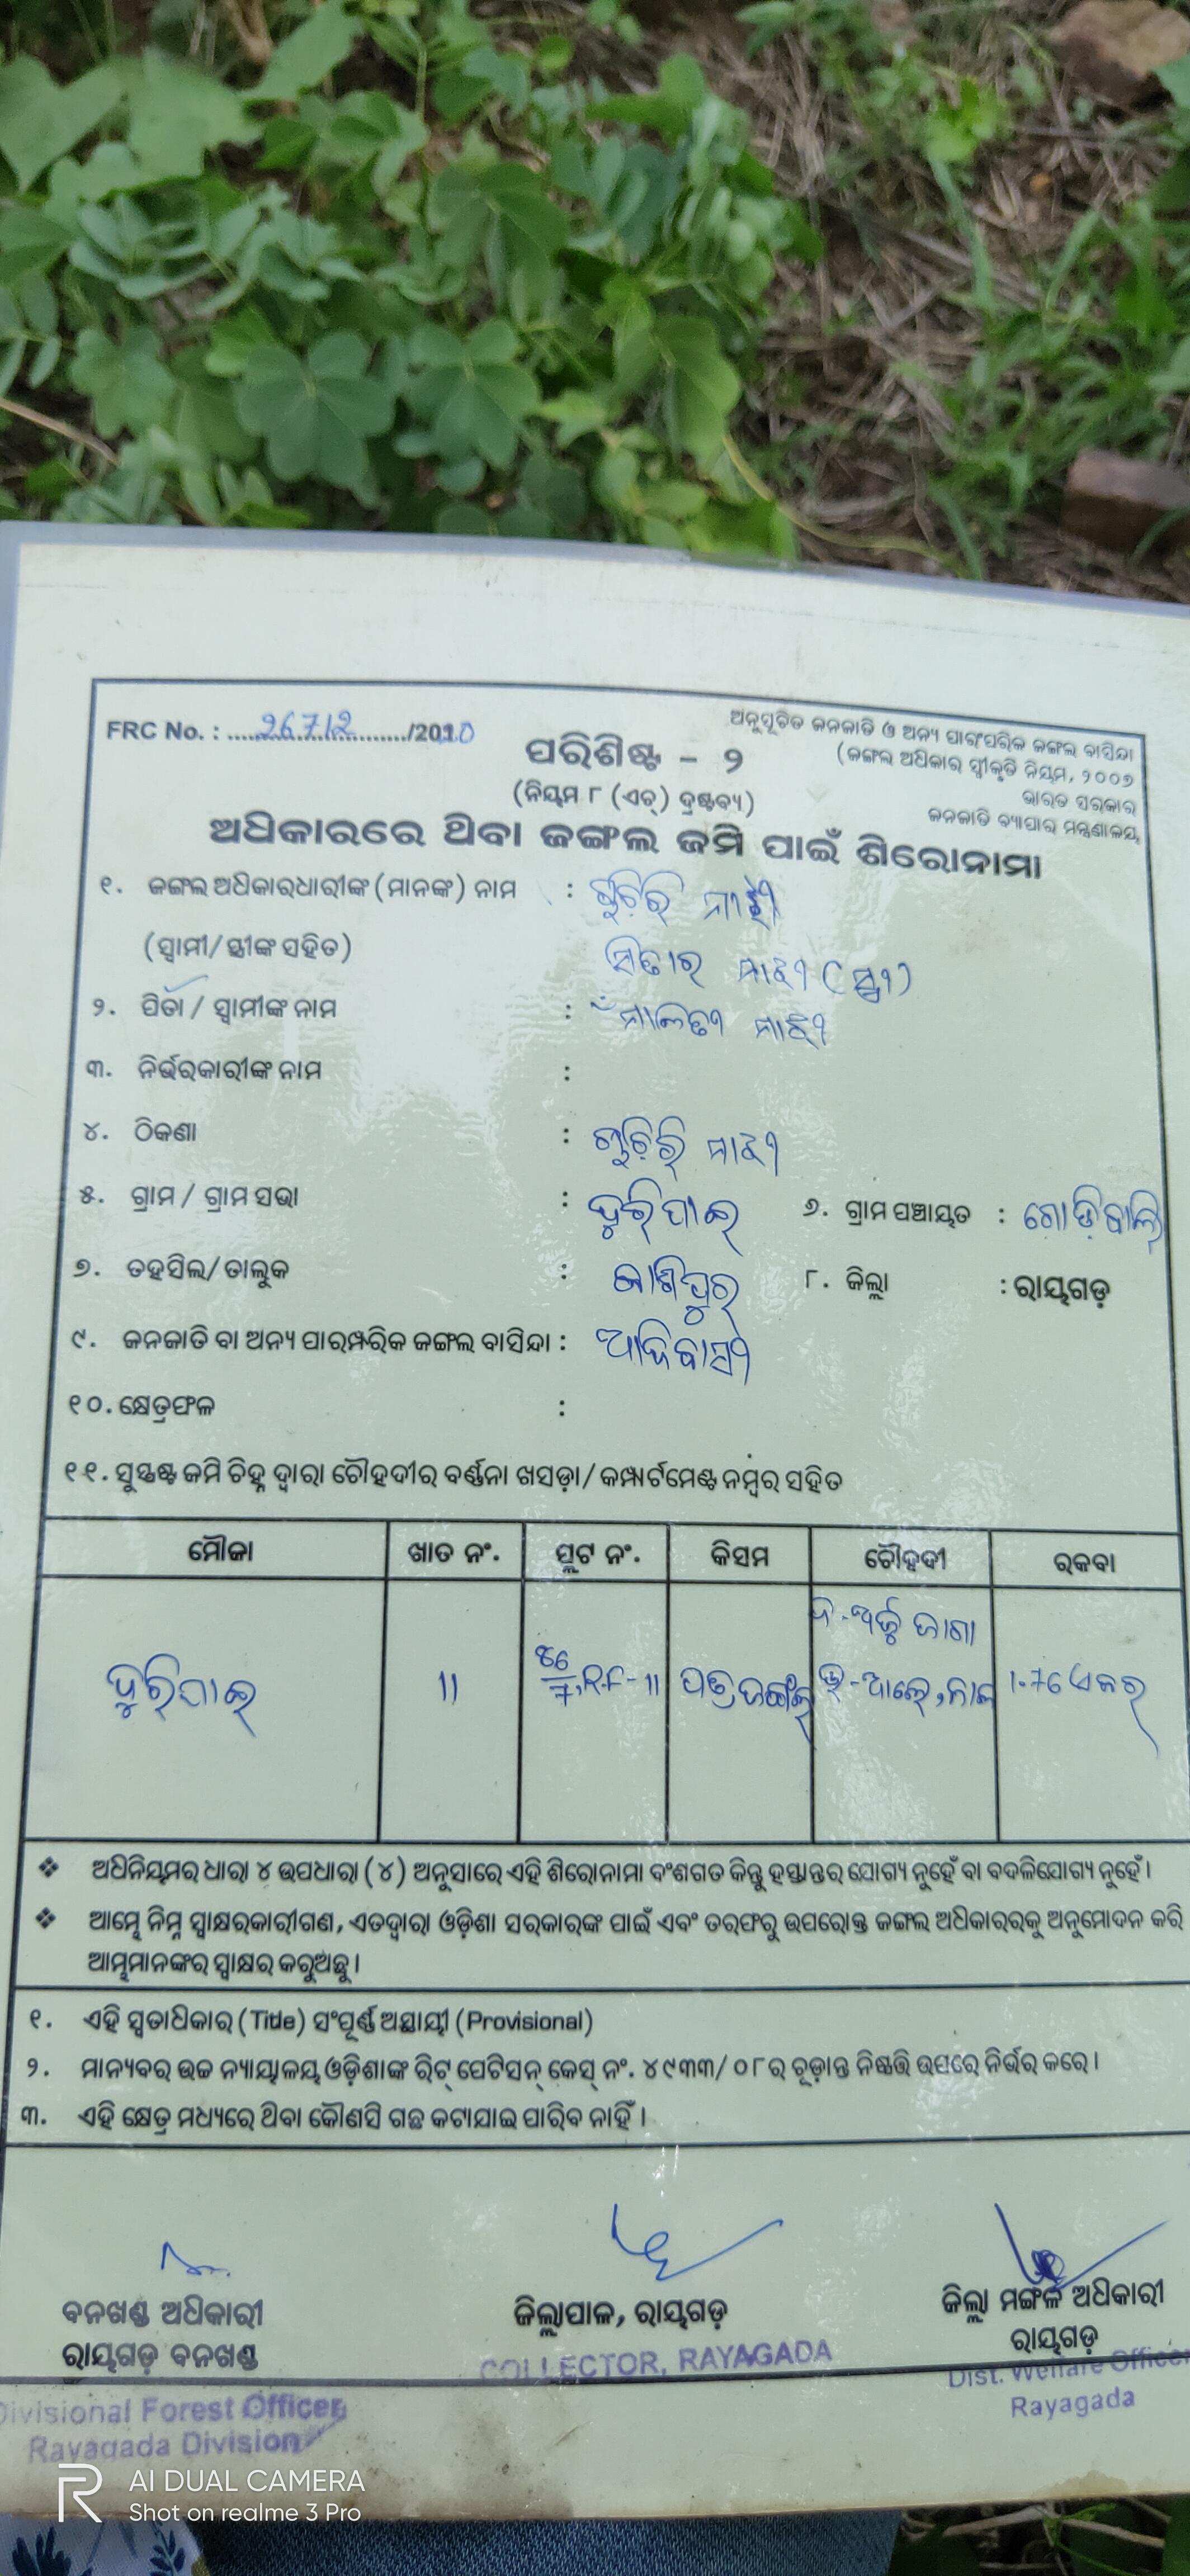 FRC No. : 26712/2010
ଅନୁସୂଚିତ ଜନଜାତି ଓ ଅନ୍ୟ ପାରଂପରିକ ଜଙ୍ଗଲ ବାସିନ୍ଦା
(ଜଙ୍ଗଲ ଅଧିକାର ସ୍ୱୀକୃତି ନିୟମ, ୨୦୦୭
ଭାରତ ସରକାର
ଜନଜାତି ବ୍ୟାପାର ମନ୍ତ୍ରଣାଳୟ
ପରିଶିଷ୍ଟ - ୨
(ନିୟମ ୮ (ଏଚ୍) ଦ୍ରଷ୍ଟବ୍ୟ)
ଅଧିକାରରେ ଥିବା ଜଙ୍ଗଲ ଜମି ପାଇଁ ଶିରୋନାମା
୧. ଜଙ୍ଗଲ ଅଧିକାରଧାରୀଙ୍କ (ମାନଙ୍କ) ନାମ : ମାଝୀ
(ସ୍ୱାମୀ/ସ୍ତ୍ରୀଙ୍କ ସହିତ) ସିତାର ମାଝୀ (ସ୍ତ୍ରୀ)
୨. ପିତା / ସ୍ୱାମୀଙ୍କ ନାମ : ମାଝୀ
୩. ନିର୍ଭରକାରୀଙ୍କ ନାମ :
୪. ଠିକଣା : ମାଝୀ
୫. ଗ୍ରାମ / ଗ୍ରାମ ସଭା : ଦୁରିପାଇ ୬. ଗ୍ରାମ ପଞ୍ଚାୟତ : ଗୋଡିବାଲି
୭. ତହସିଲ/ତାଲୁକ : କାଶିପୁର ୮. ଜିଲ୍ଲା : ରାୟଗଡ଼
୯. ଜନଜାତି ବା ଅନ୍ୟ ପାରମ୍ପରିକ ଜଙ୍ଗଲ ବାସିନ୍ଦା : ଆଦିବାସୀ
୧୦. କ୍ଷେତ୍ରଫଳ :
୧୧. ସୁସ୍ପଷ୍ଟ ଜମି ଚିହ୍ନ ଦ୍ୱାରା ଚୌହଦୀର ବର୍ଣ୍ଣନା ଖସଡ଼ା/କମ୍ପାର୍ଟମେଣ୍ଟ ନମ୍ବର ସହିତ
ମୌଜା ଖାତ ନଂ. ପ୍ଲଟ ନଂ. କିସମ ଚୌହଦୀ ରକବା
ଦ - ଜାଗା
ଦୁରିପାଇ 11 86/7, R.F-11 ପତ୍ର ଜଙ୍ଗଲ ଉ - 1.76 ଏକର
❖ ଅଧିନିୟମର ଧାରା ୪ ଉପଧାରା (୪) ଅନୁସାରେ ଏହି ଶିରୋନାମା ବଂଶଗତ କିନ୍ତୁ ହସ୍ତାନ୍ତର ଯୋଗ୍ୟ ନୁହେଁ ବା ବଦଳିଯୋଗ୍ୟ ନୁହେଁ ।
❖ ଆମ୍ଭେ ନିମ୍ନ ସ୍ୱାକ୍ଷରକାରୀଗଣ, ଏତଦ୍ୱାରା ଓଡ଼ିଶା ସରକାରଙ୍କ ପାଇଁ ଏବଂ ତରଫରୁ ଉପରୋକ୍ତ ଜଙ୍ଗଲ ଅଧିକାରରକୁ ଅନୁମୋଦନ କରି
ଆମ୍ଭମାନଙ୍କର ସ୍ୱାକ୍ଷର କରୁଅଛୁ ।
୧. ଏହି ସ୍ୱତାଧିକାର (Title) ସଂପୂର୍ଣ୍ଣ ଅସ୍ଥାୟୀ (Provisional)
୨. ମାନ୍ୟବର ଉଚ୍ଚ ନ୍ୟାୟାଳୟ ଓଡ଼ିଶାଙ୍କ ରିଟ୍ ପେଟିସନ୍ କେସ୍ ନଂ. ୪୯୩୩/୦୮ ର ଚୂଡ଼ାନ୍ତ ନିଷ୍ପତ୍ତି ଉପରେ ନିର୍ଭର କରେ ।
୩. ଏହି କ୍ଷେତ୍ର ମଧ୍ୟରେ ଥିବା କୌଣସି ଗଛ କଟାଯାଇ ପାରିବ ନାହିଁ ।
ବନଖଣ୍ଡ ଅଧିକାରୀ ଜିଲ୍ଲାପାଳ, ରାୟଗଡ଼ ଜିଲ୍ଲା ମଙ୍ଗଳ ଅଧିକାରୀ
ରାୟଗଡ଼ ବନଖଣ୍ଡ ରାୟଗଡ଼
COLLECTOR, RAYAGADA
Dist. Welfare Officer
Rayagada
Divisional Forest Officer
Rayagada Division
AI DUAL CAMERA
Shot on realme 3 Pro